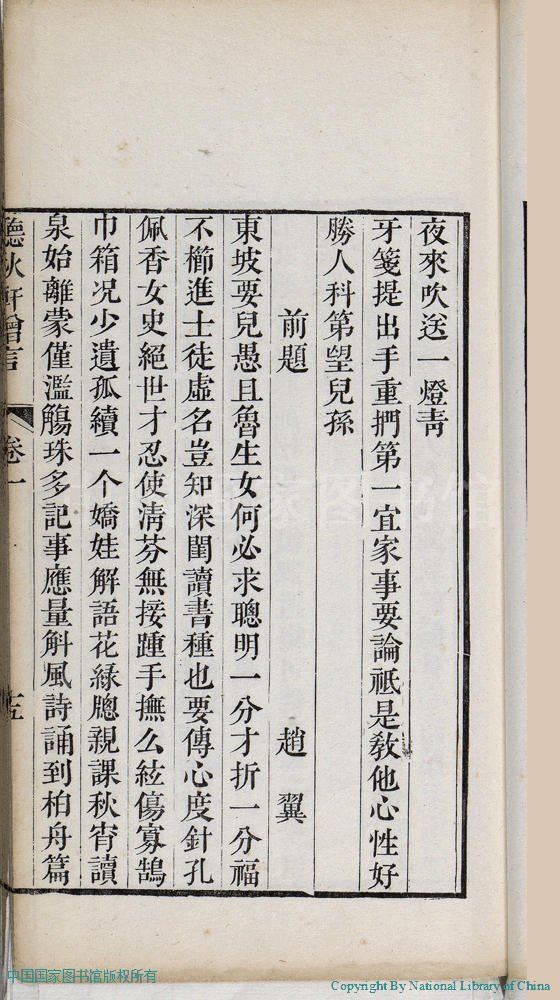 夜來吹送一燈青
牙箋提出手重捫第一宜家事要論祗是敎他心性好
勝人科第望兒孫
前題　趙翼
東坡要兒愚且魯生女何必求聰明一分才折一分福
不櫛進士徒虛名豈知深閨讀書種也要傳心度針孔
佩香女史絕世才忍使淸芬無接踵手撫么絃傷寡鵠
巾箱况少遺孤續一个嬌娃解語花綠牕親課秋宵讀
泉始離蒙僅濫觴珠多記事應量斛風詩誦到柏舟篇
聽秋軒贈言　卷一
中国国家图书馆版权所有
Copyright By National Library of China